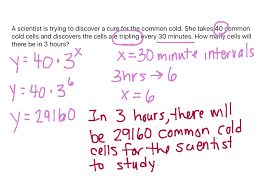 A scientist is trying to discover a cure for the common cold. She takes 40 common
cold cells and discovers the cells are tripling every 30 minutes. How many cells will
there be in 3 hours?
y = 40 · 3^x
x = 30 minute intervals
3hrs → 6
x = 6
y = 40 · 3^6
y = 29160
In 3 hours, there will
be 29160 common cold
cells for the scientist
to study.